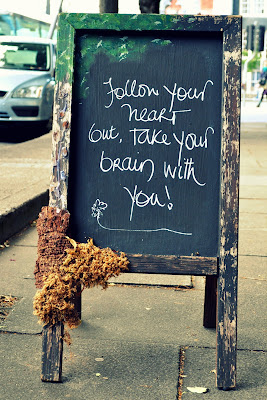 Follow your
heart
but, take your
brain with
you!